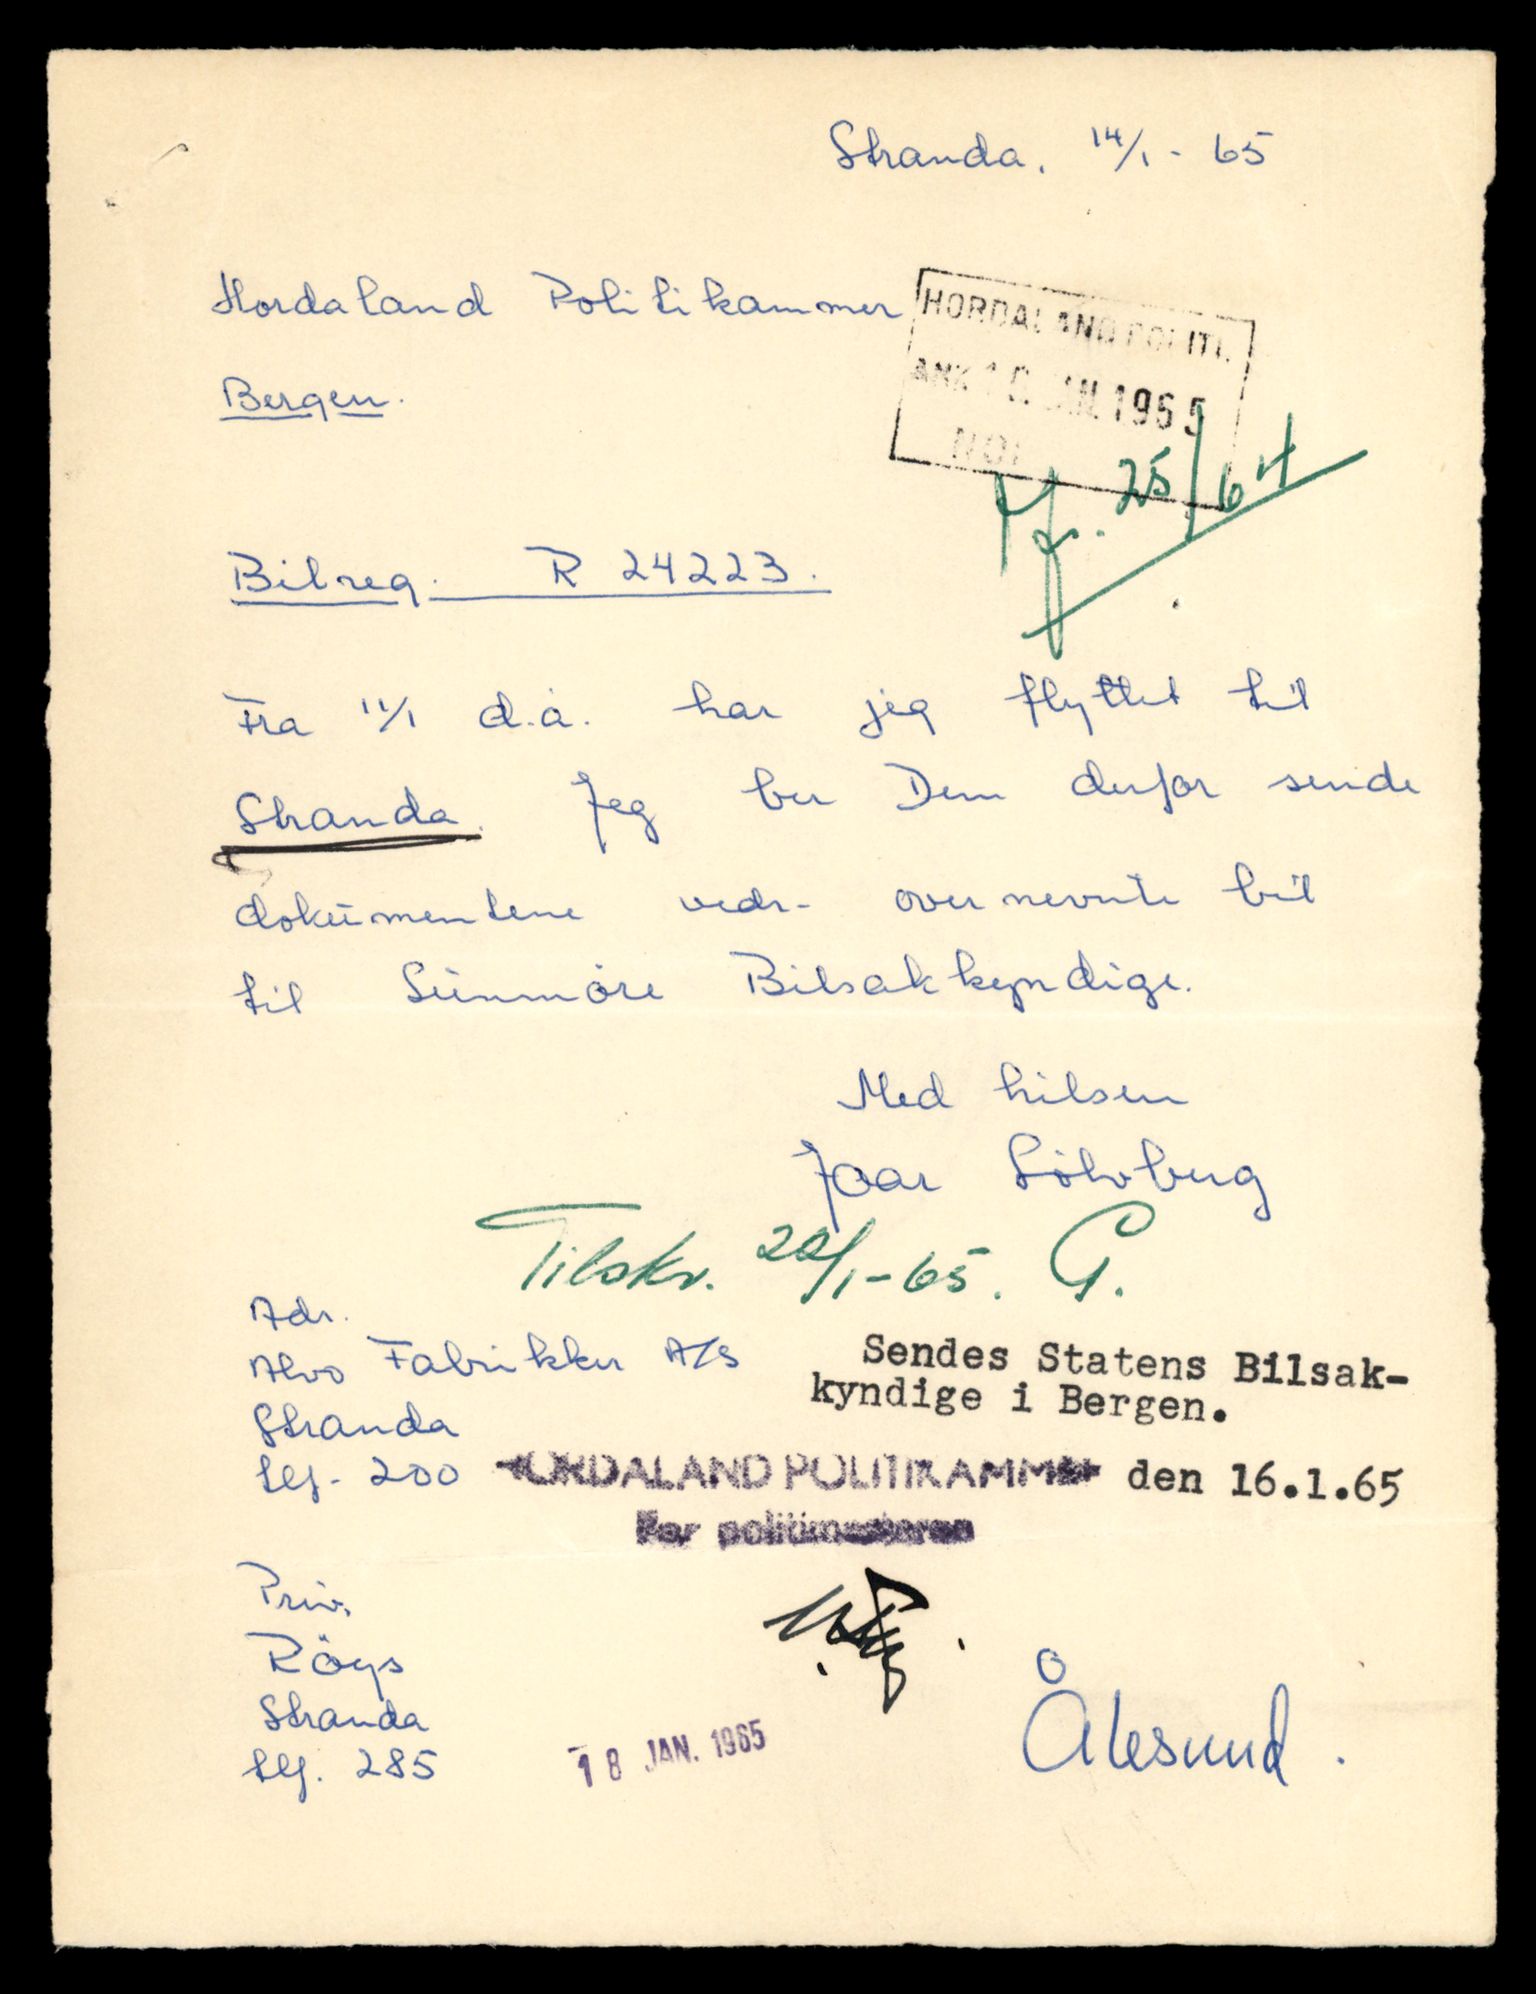 Stranda, 14/1 - 65
Hordaland Politikammer
Bergen.
HORDALAND POLITI.
ANK 1 JAN. 1965
25/64
Bilreg. R 24223.
Fra 11/1 d.å. har jeg flyttet til
Stranda. Jeg ber Dem derfor sende
dokumentene vedr. overnevnte bil
til Sünmöre Bilsakkyndige.
Med hilsen
Joar Sölvberg
Tilskr. 20/1-65. G.
Adr.
Alvo Fabrikker A/S
Stranda
tlf. 200
Sendes Statens Bilsak-
kyndige i Bergen.
HORDALAND POLITIKAMMER den 16.1.65
For politimesteren
Priv.
Röys
Stranda
tlf. 285
18 JAN. 1965
Ålesund.